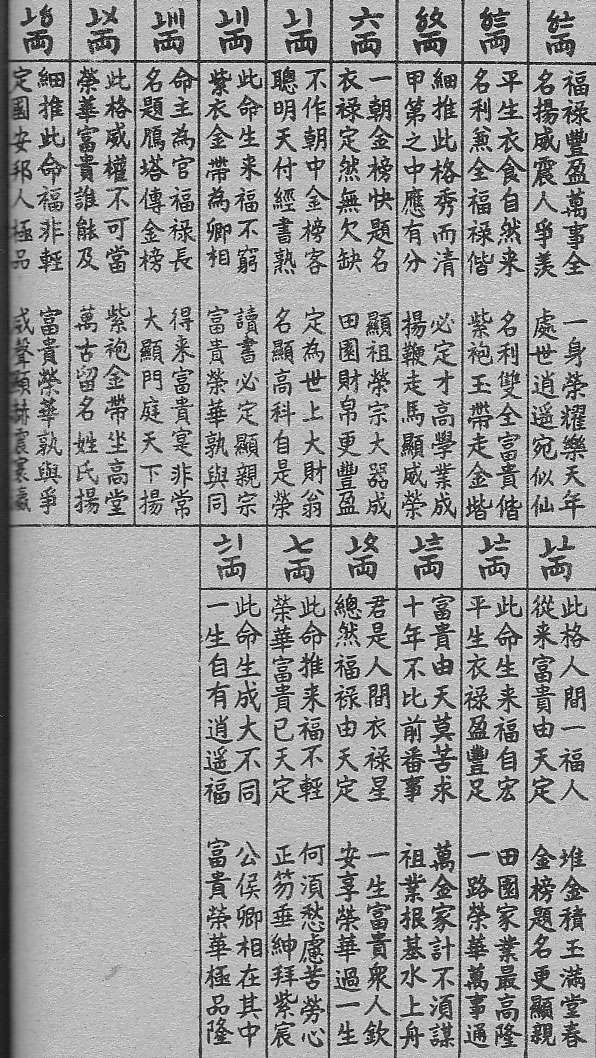 福禄豐盈萬事全 一身榮耀樂天年
名揚威震人爭羨 處世逍遥宛似仙
平生衣食自然来 名利雙全富貴偕
名利兼全福禄偕 紫袍玉帶走金堦
細推此格秀而清 必定才高學業成
甲第之中應有分 揚鞭走馬顯威榮
六両
一朝金榜快題名 顯祖榮宗大器成
衣禄定然無欠缺 田園財帛更豐盈
不作朝中金榜客 定為世上大財翁
聰明天付經書熟 名顯高科自是榮
此命生来福不窮 讀書必定顯親宗
紫衣金帶為卿相 富貴榮華孰與同
命主為官福禄長 得来富貴寔非常
名題鴈塔傳金榜 大顯門庭天下揚
此格威權不可當 紫袍金帶坐高堂
榮華富貴誰能及 萬古留名姓氏揚
細推此命福非輕 富貴榮華孰與爭
定國安邦人極品 威聲顯赫震寰瀛
此格人間一福人 堆金積玉滿堂春
從来富貴由天定 金榜題名更顯親
此命生来福自宏 田園家業最高隆
平生衣禄盈豐足 一路榮華萬事通
富貴由天莫苦求 萬金家計不須謀
十年不比前番事 祖業根基水上舟
君是人間衣禄星 一生富貴衆人欽
總然福禄由天定 安享榮華過一生
七両
此命推来福不輕 何須愁慮苦勞心
榮華富貴已天定 正笏垂紳拜紫宸
此命生成大不同 公侯卿相在其中
一生自有逍遥福 富貴榮華極品隆